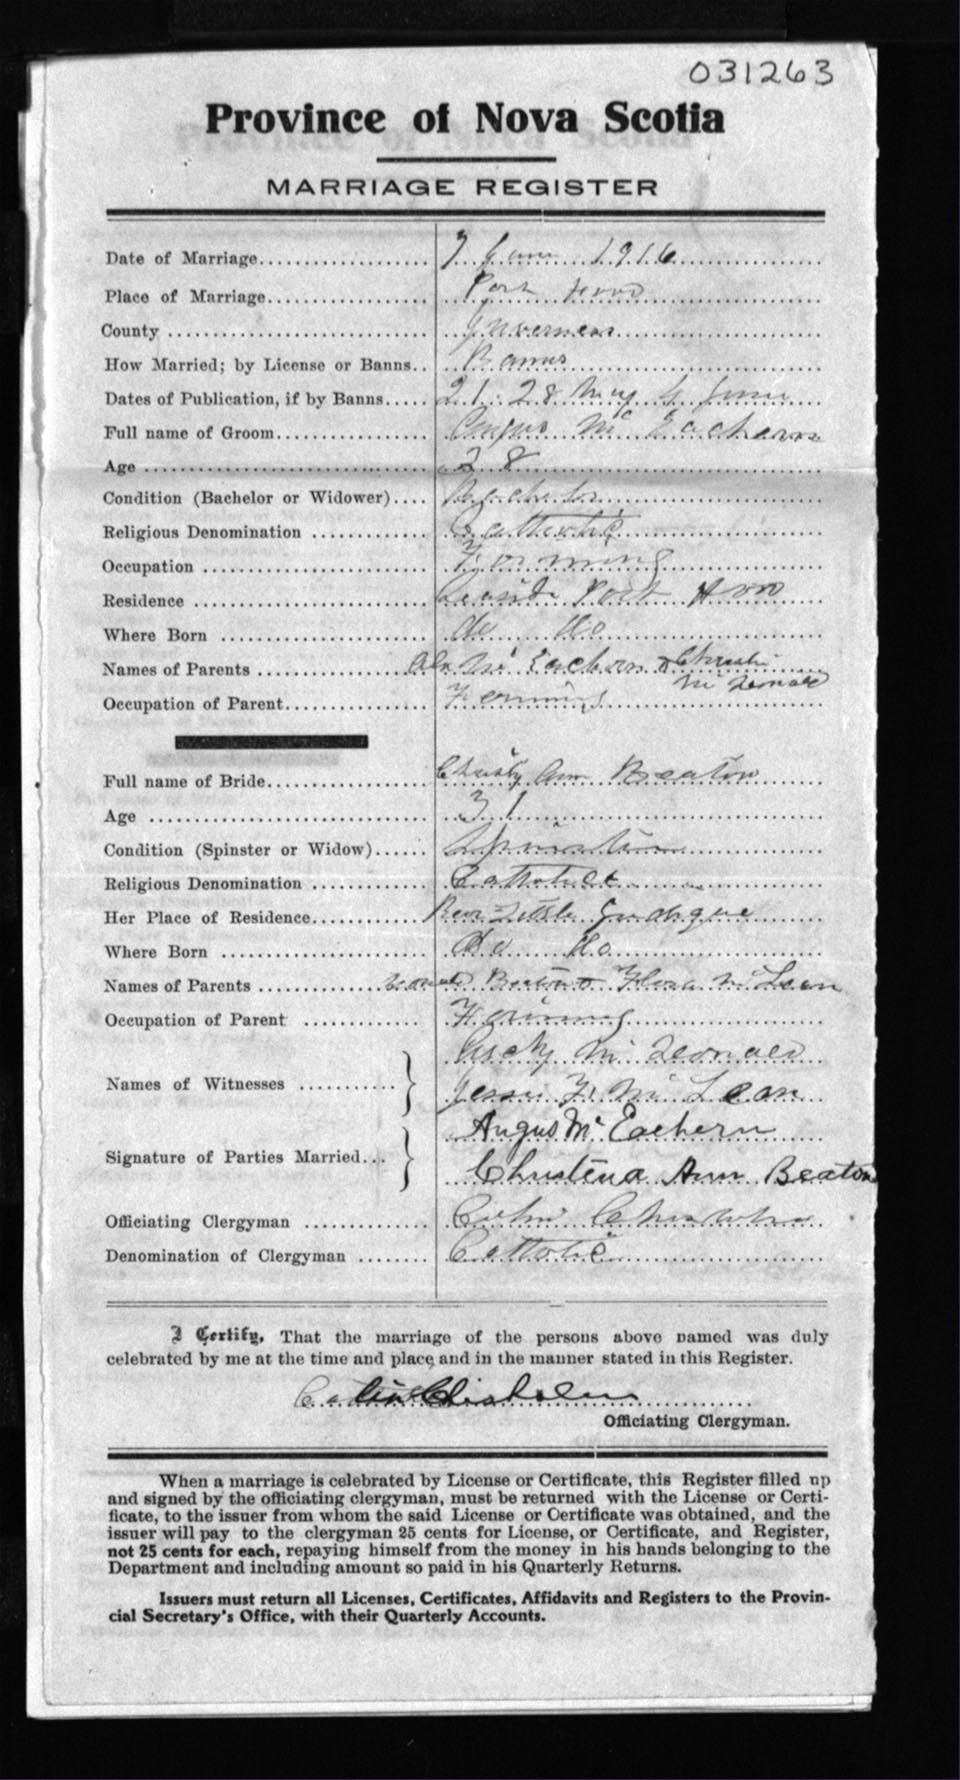 031263
Province of Nova Scotia
MARRIAGE REGISTER
Date of Marriage 7 June 1916
Place of Marriage Port Hood
County Inverness
How Married; by License or Banns Banns
Dates of Publication, if by Banns 21. 28 May 4 June
Full name of Groom Angus Mc Eachern
Age 28
Condition (Bachelor or Widower) Bachelor
Religious Denomination Catholic
Occupation Farming
Residence Seaside Port Hood
Where Born do do
Names of Parents Alex Mc Eachern & Christie
Mc Donald
Occupation of Parent Farming
Full name of Bride Christy Ann Beaton
Age 31
Condition (Spinster or Widow) Spinster
Religious Denomination Catholic
Her Place of Residence Rear Little Judique
Where Born do do
Names of Parents Donald Beaton & Flora McLean
Occupation of Parent Farming
Names of Witnesses Mc Donald
F. Mc Lean
Signature of Parties Married Angus Mc Eachern
Christena Ann Beaton
Officiating Clergyman Colin Chisholm
Denomination of Clergyman Catholic
I Certify, That the marriage of the persons above named was duly
celebrated by me at the time and place and in the manner stated in this Register.
Colin Chisholm
Officiating Clergyman.
When a marriage is celebrated by License or Certificate, this Register filled up
and signed by the officiating clergyman, must be returned with the License or Certi-
ficate, to the issuer from whom the said License or Certificate was obtained, and the
issuer will pay to the clergyman 25 cents for License, or Certificate, and Register,
not 25 cents for each, repaying himself from the money in his hands belonging to the
Department and including amount so paid in his Quarterly Returns.
Issuers must return all Licenses, Certificates, Affidavits and Registers to the Provin-
cial Secretary's Office, with their Quarterly Accounts.